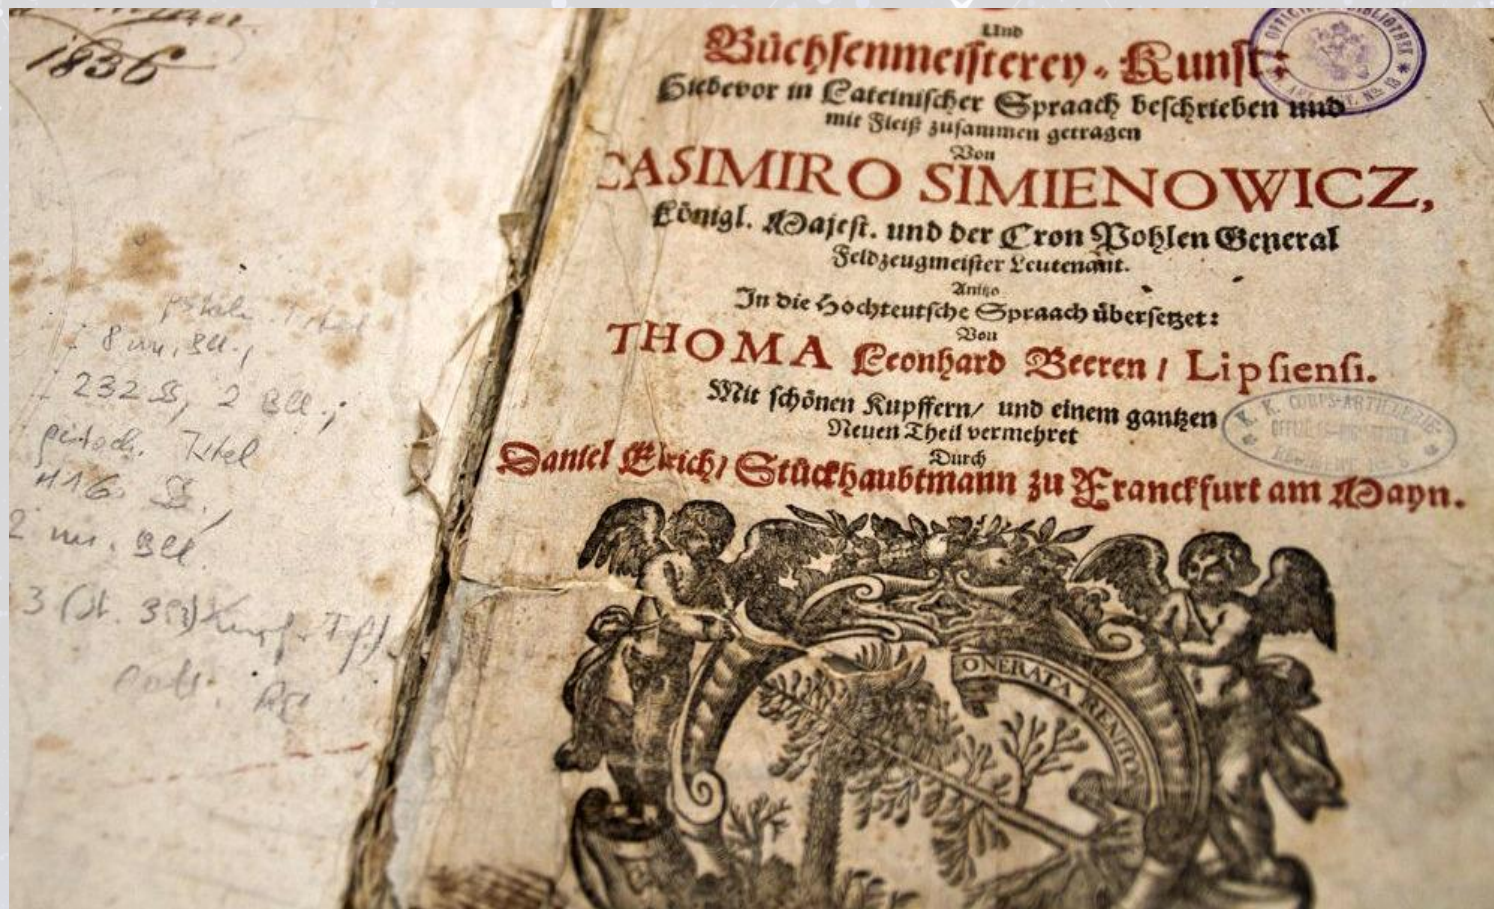 1836
8 nn. Bll.,
232 S., 2 Bll.;
gestoch. Titel
2 nn. Bll.
Und
Büchsenmeisterey-Kunst:
Hiebevor in Lateinischer Spraach beschrieben und
mit Fleiß zusammen getragen
Von
CASIMIRO SIMIENOWICZ,
Königl. Majest. und der Cron Pohlen General
Feldzeugmeister Leutenant.
Anitzo
In die Hochteutsche Spraach übersetzet:
Von
THOMA Leonhard Beeren / Lipsiensi.
Mit schönen Kupffern/ und einem gantzen
Neuen Theil vermehret
Durch
Daniel Elrich/ Stückhaubtmann zu Franckfurt am Mayn.
ONERATA RENITOR
K. K. CORPS-ARTILLERIE-